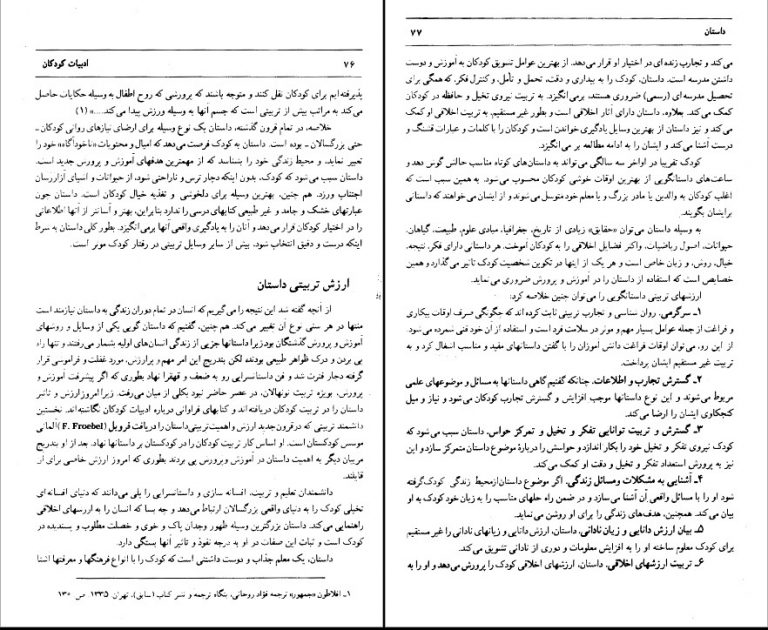 ادبیات کودکان ۷۶
پذیرفته‌ایم برای کودکان نقل کنند و متوجه باشند که پرورشی که روح اطفال به وسیله حکایات حاصل
می‌کند به مراتب بیش از تربیتی است که جسم آنها به وسیله ورزش پیدا می‌کند...» (۱)
خلاصه، در تمام قرون گذشته، داستان یک نوع وسیله برای ارضای نیازهای روانی کودکان ـ
حتی بزرگسالان ـ بوده است. داستان به کودک فرصت می‌دهد که امیال و محتویات «ناخودآگاه» خود را
تعبیر نماید، و محیط زندگی خود را بشناسد که از مهمترین هدفهای آموزش و پرورش جدید است.
داستان سبب می‌شود که کودک، بدون اینکه دچار ترس و ناراحتی شود، از حیوانات و اشیای آزاررسان
اجتناب ورزد. هم چنین، بهترین وسیله برای دلخوشی و تغذیه خیال کودکان است. داستان چون
عبارتهای خشک و جامد و غیر طبیعی کتابهای درسی را ندارد بنابراین، بهتر و آسانتر از آنها اطلاعاتی
را در اختیار کودکان قرار می‌دهد و آنان را به یادگیری واقعی آنها برمی‌انگیزد. بطور کلی داستان به شرط
اینکه درست و دقیق انتخاب شود، بیش از سایر وسایل تربیتی در رفتار کودک موثر است.
ارزش تربیتی داستان
از آنچه گفته شد این نتیجه را می‌گیریم که انسان در تمام دوران زندگی به داستان نیازمند است
منتها در هر سنی نوع آن تغییر می‌کند. هم چنین، گفتیم که داستان گویی یکی از وسایل و روشهای
آموزش و پرورش گذشتگان بود زیرا داستانها جزیی از زندگی انسان‌های اولیه بشمار می‌رفتند و تنها راه
پی بردن و درک ظواهر طبیعی بودند لکن بتدریج این امر مهم و باارزش، مورد غفلت و فراموشی قرار
گرفته دچار فترت شد و فن داستانسرایی رو به ضعف و قهقرا نهاد بطوری که اگر پیشرفت آموزش و
پرورش، بویژه تربیت نونهالان، در عصر حاضر نبود بکلی از میان می‌رفت. زیرا امروز ارزش و تاثیر
داستان را در تربیت کودکان دریافته‌اند و کتابهای فراوانی درباره ادبیات کودکان نگاشته‌اند. نخستین
دانشمند تربیتی که در قرون جدید ارزش و اهمیت تربیتی داستان را دریافت فروبل (F. Froebel) آلمانی
موسس کودکستان است. او اساس کار تربیت کودکان را در کودکستان بر داستانها نهاد. بعد از او بتدریج
مربیان دیگر به اهمیت داستان در آموزش و پرورش پی بردند بطوری که امروز ارزش خاصی برای آن
قایلند.
دانشمندان تعلیم و تربیت، افسانه سازی و داستانسرایی را پلی می‌دانند که دنیای افسانه‌ای
تخیلی کودک را به دنیای واقعی بزرگسالان ارتباط می‌دهد و چه بسا که انسان را به ارزشهای اخلاقی
راهنمایی می‌کند. داستان بزرگترین وسیله ظهور وجدان پاک و خوی و خصلت مطلوب و پسندیده در
کودک است و ثبات این صفات در او به درجه نفوذ و تاثیر آنها بستگی دارد.
داستان، یک معلم جذاب و دوست داشتنی است که کودک را با انواع فرهنگها و معرفتها آشنا
۱ـ افلاطون «جمهور» ترجمه فؤاد روحانی، بنگاه ترجمه و نشر کتاب (سابق)، تهران ۱۳۳۵ ص ۱۳۰
داستان ۷۷
می‌کند و تجارب زنده‌ای در اختیار او قرار می‌دهد. از بهترین عوامل تشویق کودکان به آموزش و دوست
داشتن مدرسه است. داستان، کودک را به بیداری و دقت، تحمل و تأمل، و کنترل فکر که همگی برای
تحصیل مدرسه‌ای (رسمی) ضروری هستند، برمی‌انگیزد. به تربیت نیروی تخیل و حافظه در کودکان
کمک می‌کند. بعلاوه، داستان دارای آثار اخلاقی است و بطور غیر مستقیم به تربیت اخلاقی او کمک
می‌کند و نیز داستان از بهترین وسایل یادگیری خواندن است و کودکان را با کلمات و عبارات قشنگ و
درست آشنا می‌کند و ایشان را به ادامه مطالعه بر می‌انگیزد.
کودک تقریبا در اواخر سه سالگی می‌تواند به داستان‌های کوتاه مناسب حالش گوش دهد و
ساعت‌های داستانگویی از بهترین اوقات خوشی کودکان محسوب می‌شود. به همین سبب است که
اغلب کودکان به والدین یا مادر بزرگ و یا معلم خود متوسل می‌شوند و از ایشان می‌خواهند که داستانی
برایشان بگویند.
به وسیله داستان می‌توان «حقایق» زیادی از تاریخ، جغرافیا، مبادی علوم، طبیعت، گیاهان،
حیوانات، اصول ریاضیات، واکثر فضایل اخلاقی را به کودکان آموخت. هر داستانی دارای فکر، نتیجه،
خیال، روش، و زبان خاص است و هر یک از اینها در تکوین شخصیت کودک تاثیر می‌گذارد و همین
خصایص است که استفاده از داستان را در آموزش و پرورش ضروری می‌نماید.
ارزشهای تربیتی داستانگویی را می‌توان چنین خلاصه کرد:
۱ـ سرگرمی. روان شناسی و تجارب تربیتی ثابت کرده‌اند که چگونگی صرف اوقات بیکاری
و فراغت از جمله عوامل بسیار مهم و موثر در سلامت فرد است و استفاده از آن خود فنی شمرده می‌شود.
از این رو، می‌توان اوقات فراغت دانش آموزان را با گفتن داستانهای مفید و مناسب اشغال کرد و به
تربیت غیر مستقیم ایشان پرداخت.
۲ـ گسترش تجارب و اطلاعات. چنانکه گفتیم گاهی داستانها به مسائل و موضوعهای علمی
مربوط می‌شوند و این نوع داستانها موجب افزایش و گسترش تجارب کودکان می‌شود و نیاز و میل
کنجکاوی ایشان را ارضا می‌کند.
۳ـ گسترش و تربیت توانایی تفکر و تخیل و تمرکز حواس. داستان سبب می‌شود که
کودک نیروی تفکر و تخیل خود را بکار اندازد و حواسش را دربارهٔ موضوع داستان متمرکز سازد و این
نیز به پرورش استعداد تفکر و تخیل و دقت او کمک می‌کند.
۴ـ آشنایی به مشکلات و مسائل زندگی. اگر موضوع داستان ازمحیط زندگی کودک گرفته
شود او را با مسائل واقعی آن آشنا می‌سازد و در ضمن راه حلهای مناسب را به زبان خود کودک به او
بیان می‌کند. همچنین، هدف‌های زندگی را برای او روشن می‌نماید.
۵ـ بیان ارزش دانایی و زیان نادانی. داستان، ارزش دانایی و زیانهای نادانی را غیر مستقیم
برای کودک معلوم ساخته او را به افزایش معلومات و دوری از نادانی تشویق می‌کند.
۶ـ تربیت ارزشهای اخلاقی. داستان، ارزشهای اخلاقی کودک را پرورش می‌دهد و او را به